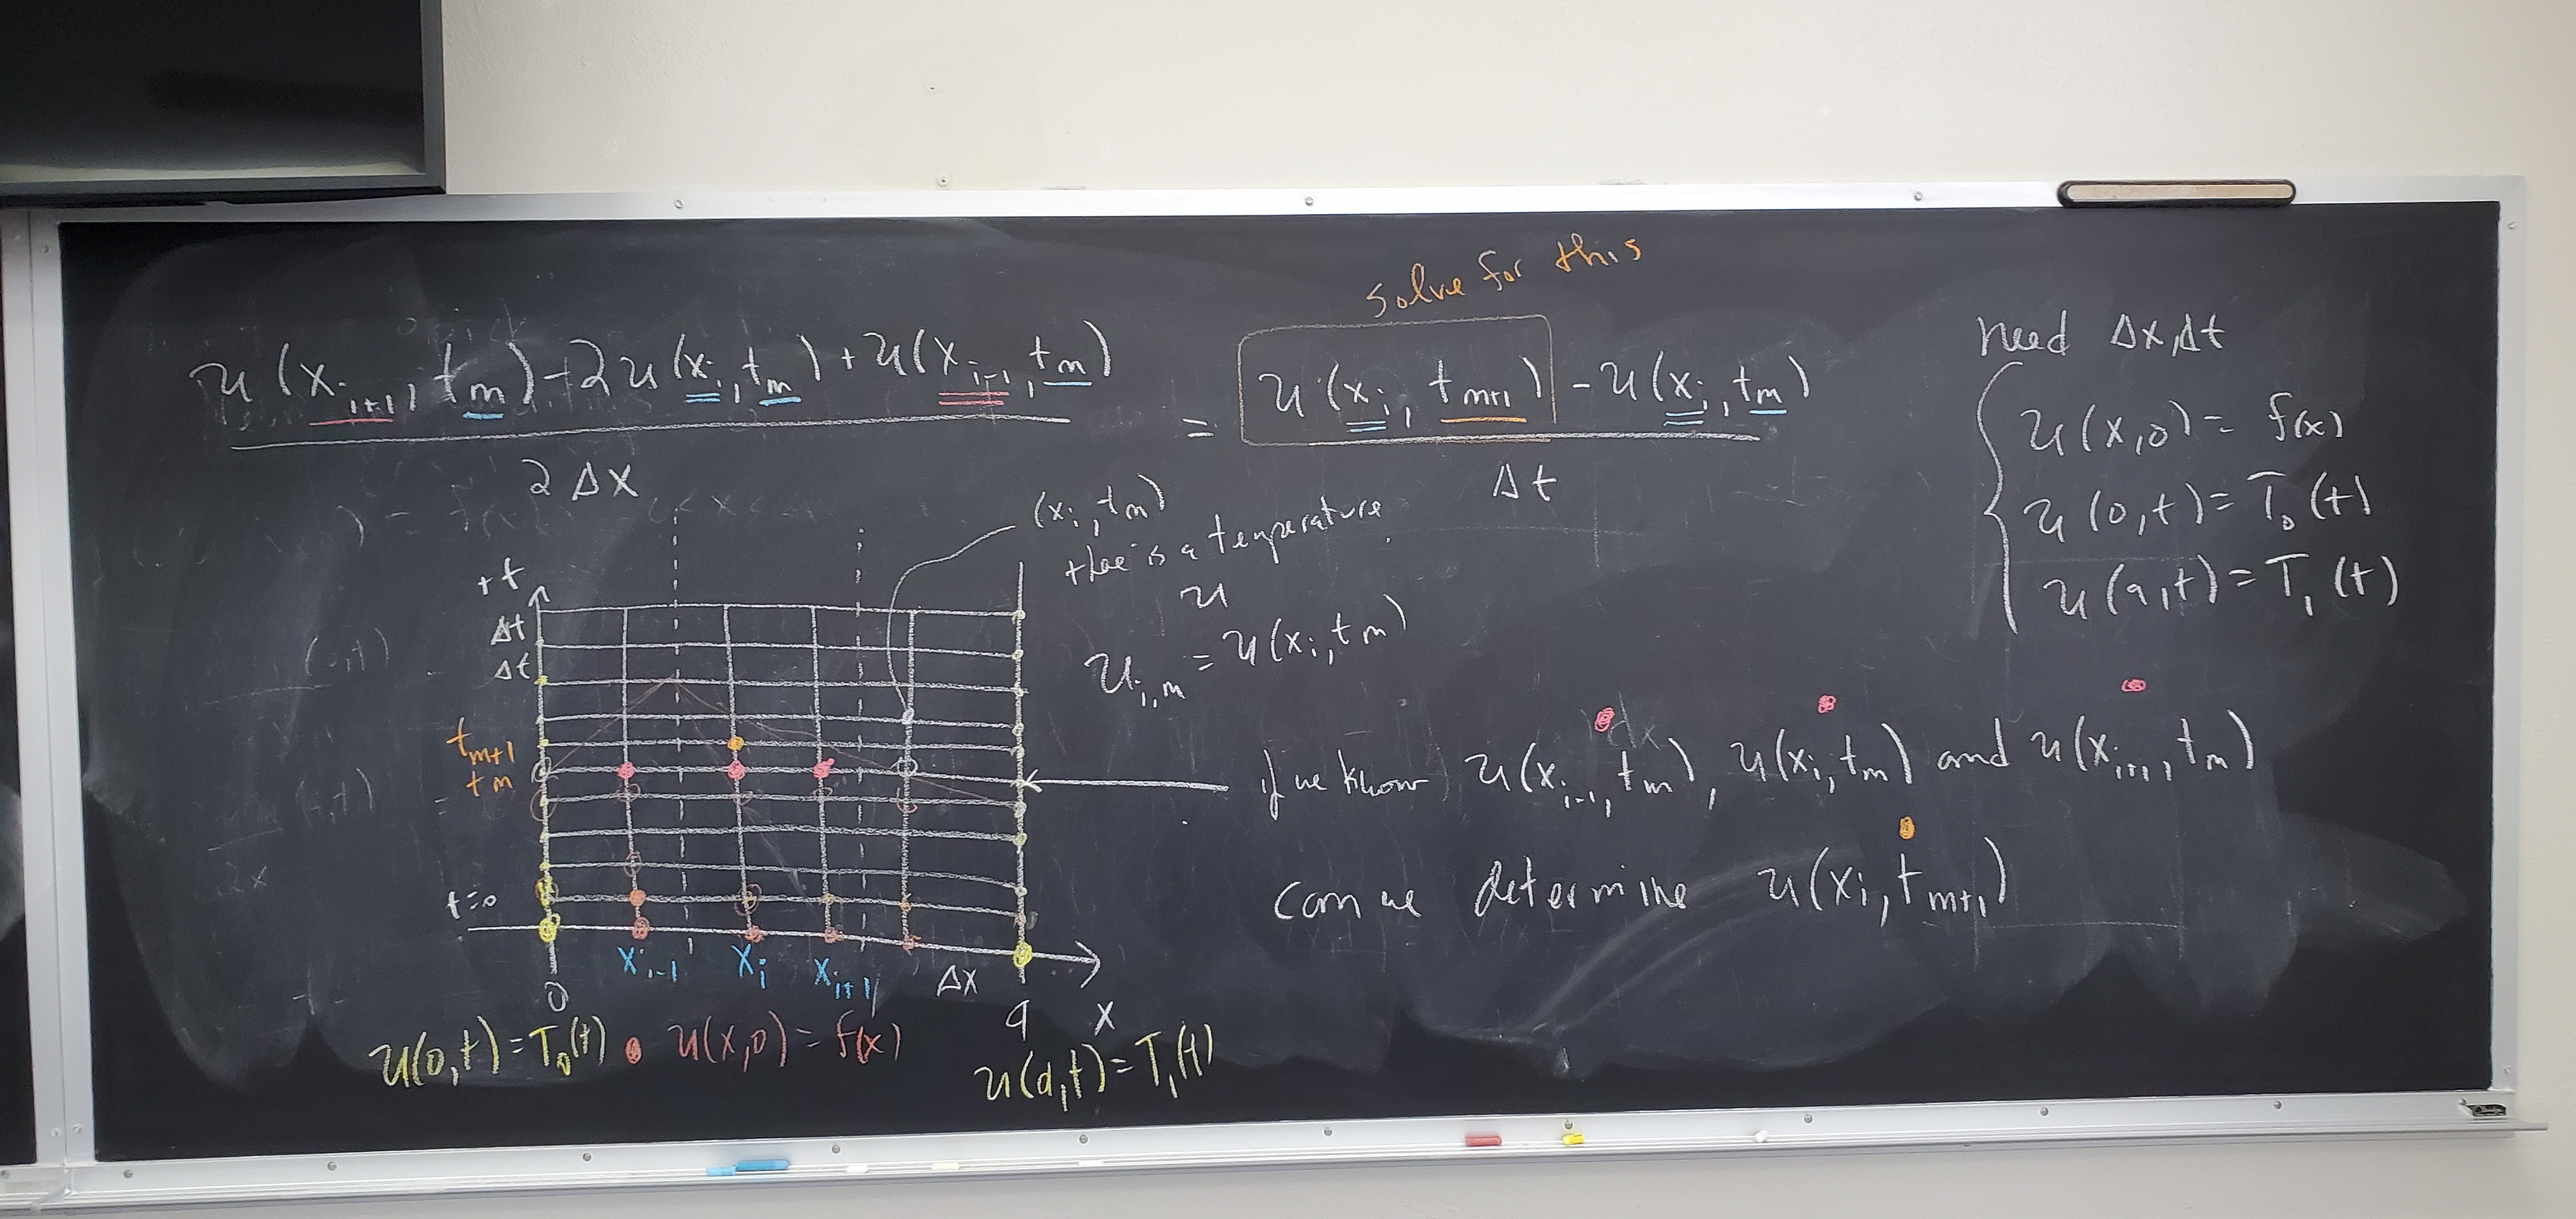 solve for this
u(x_{i+1}, t_m) - 2u(x_i, t_m) + u(x_{i-1}, t_m) = u(x_i, t_{m+1}) - u(x_i, t_m)
2 Δx
Δt
need Δx, Δt
u(x,0) = f(x)
u(0,t) = T_0(t)
u(a,t) = T_1(t)
(x_i, t_m)
there is a temperature
u
u_{i,m} = u(x_i, t_m)
t
Δt
Δt
t_{m+1}
t_m
t=0
x_{i-1} x_i x_{i+1} Δx
0 a x
u(0,t) = T_0(t) u(x,0) = f(x) u(a,t) = T_1(t)
if we know u(x_{i-1}, t_m), u(x_i, t_m) and u(x_{i+1}, t_m)
can we determine u(x_i, t_{m+1})